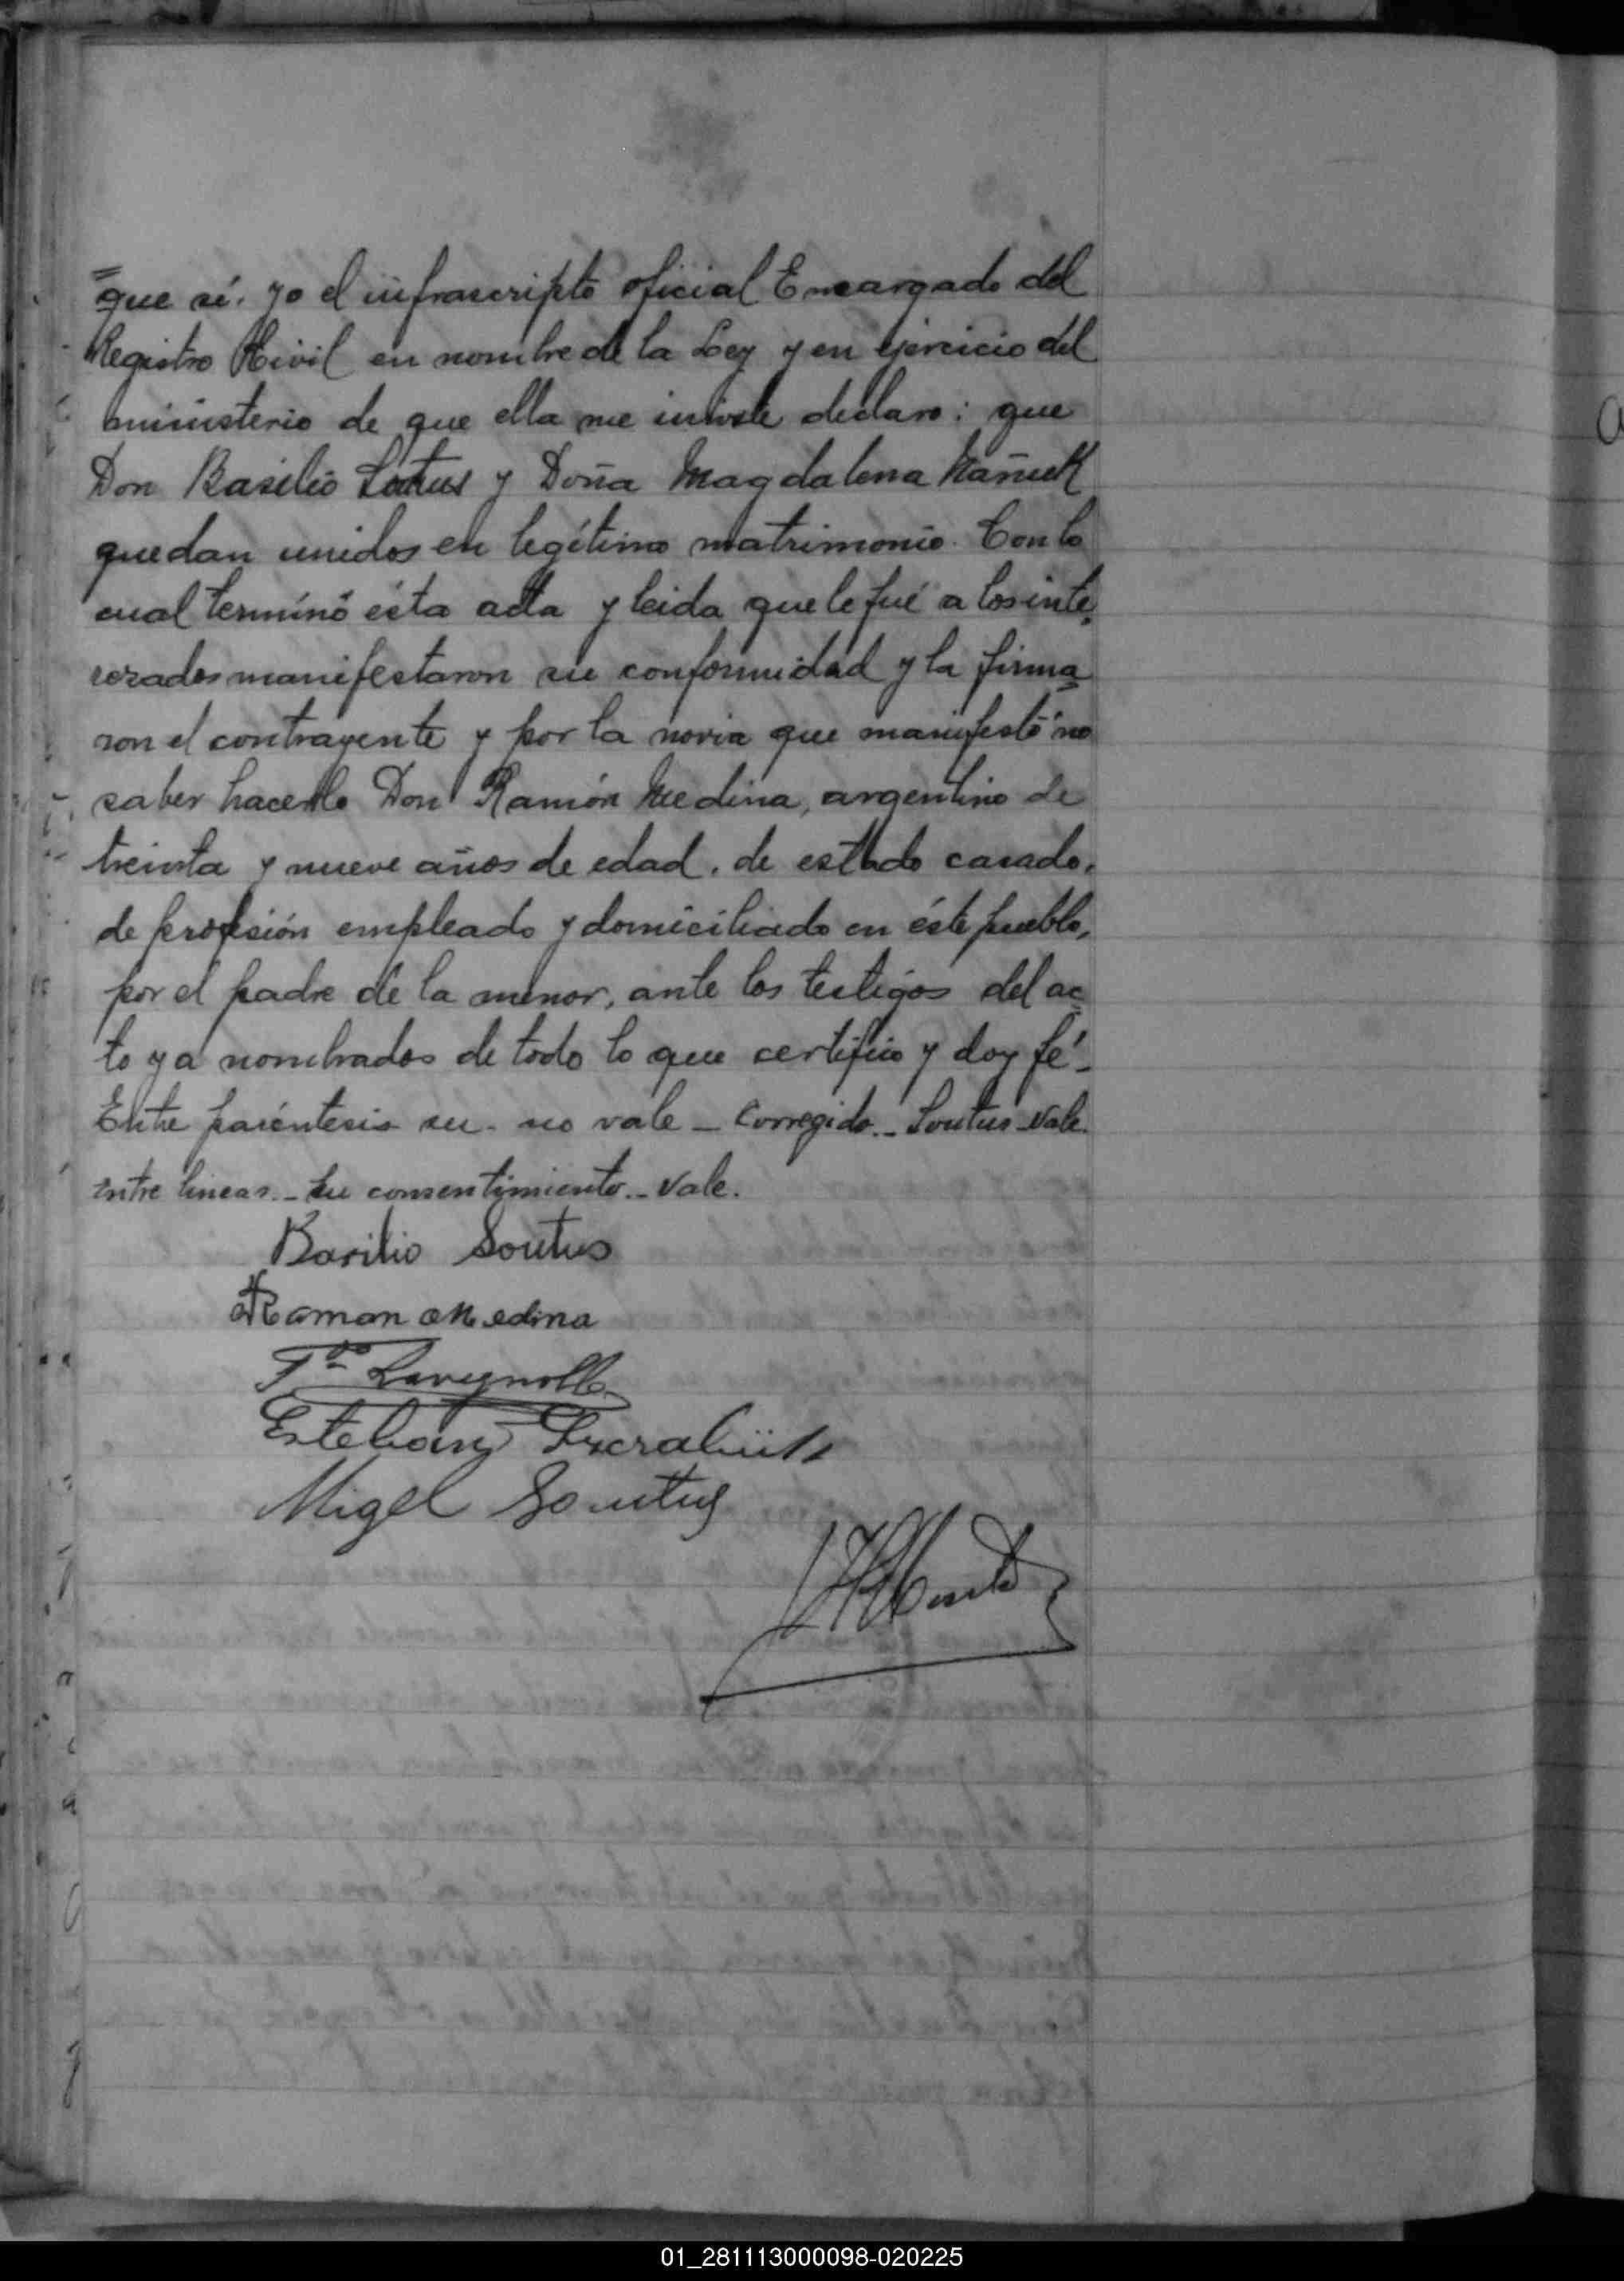 que sí. yo el infrascripto oficial Encargado del
Registro Civil en nombre de la Ley y en ejercicio del
ministerio de que ella me inviste declaro: que
Don Basilio Soutus y Doña Magdalena
quedan unidos en legítimo matrimonio. Con lo
cual terminó ésta acta y leida que le fué a los inte-
rezados manifestaron su conformidad y la firma-
ron el contrayente y por la novia que manifestó no
saber hacerlo Don Ramón Medina, argentino de
treinta y nueve años de edad, de estado casado,
de profesión empleado y domiciliado en éste pueblo,
por el padre de la menor, ante los testigos del ac-
to ya nombrados de todo lo que certifico y doy fé_
Entre paréntesis su - no vale _ Corregido _ Soutus _ Vale.
Entre lineas _ su consentimiento _ Vale.
Basilio Soutus
Ramon Medina
Esteban
Migel Soutus
a
01_281113000098-020225